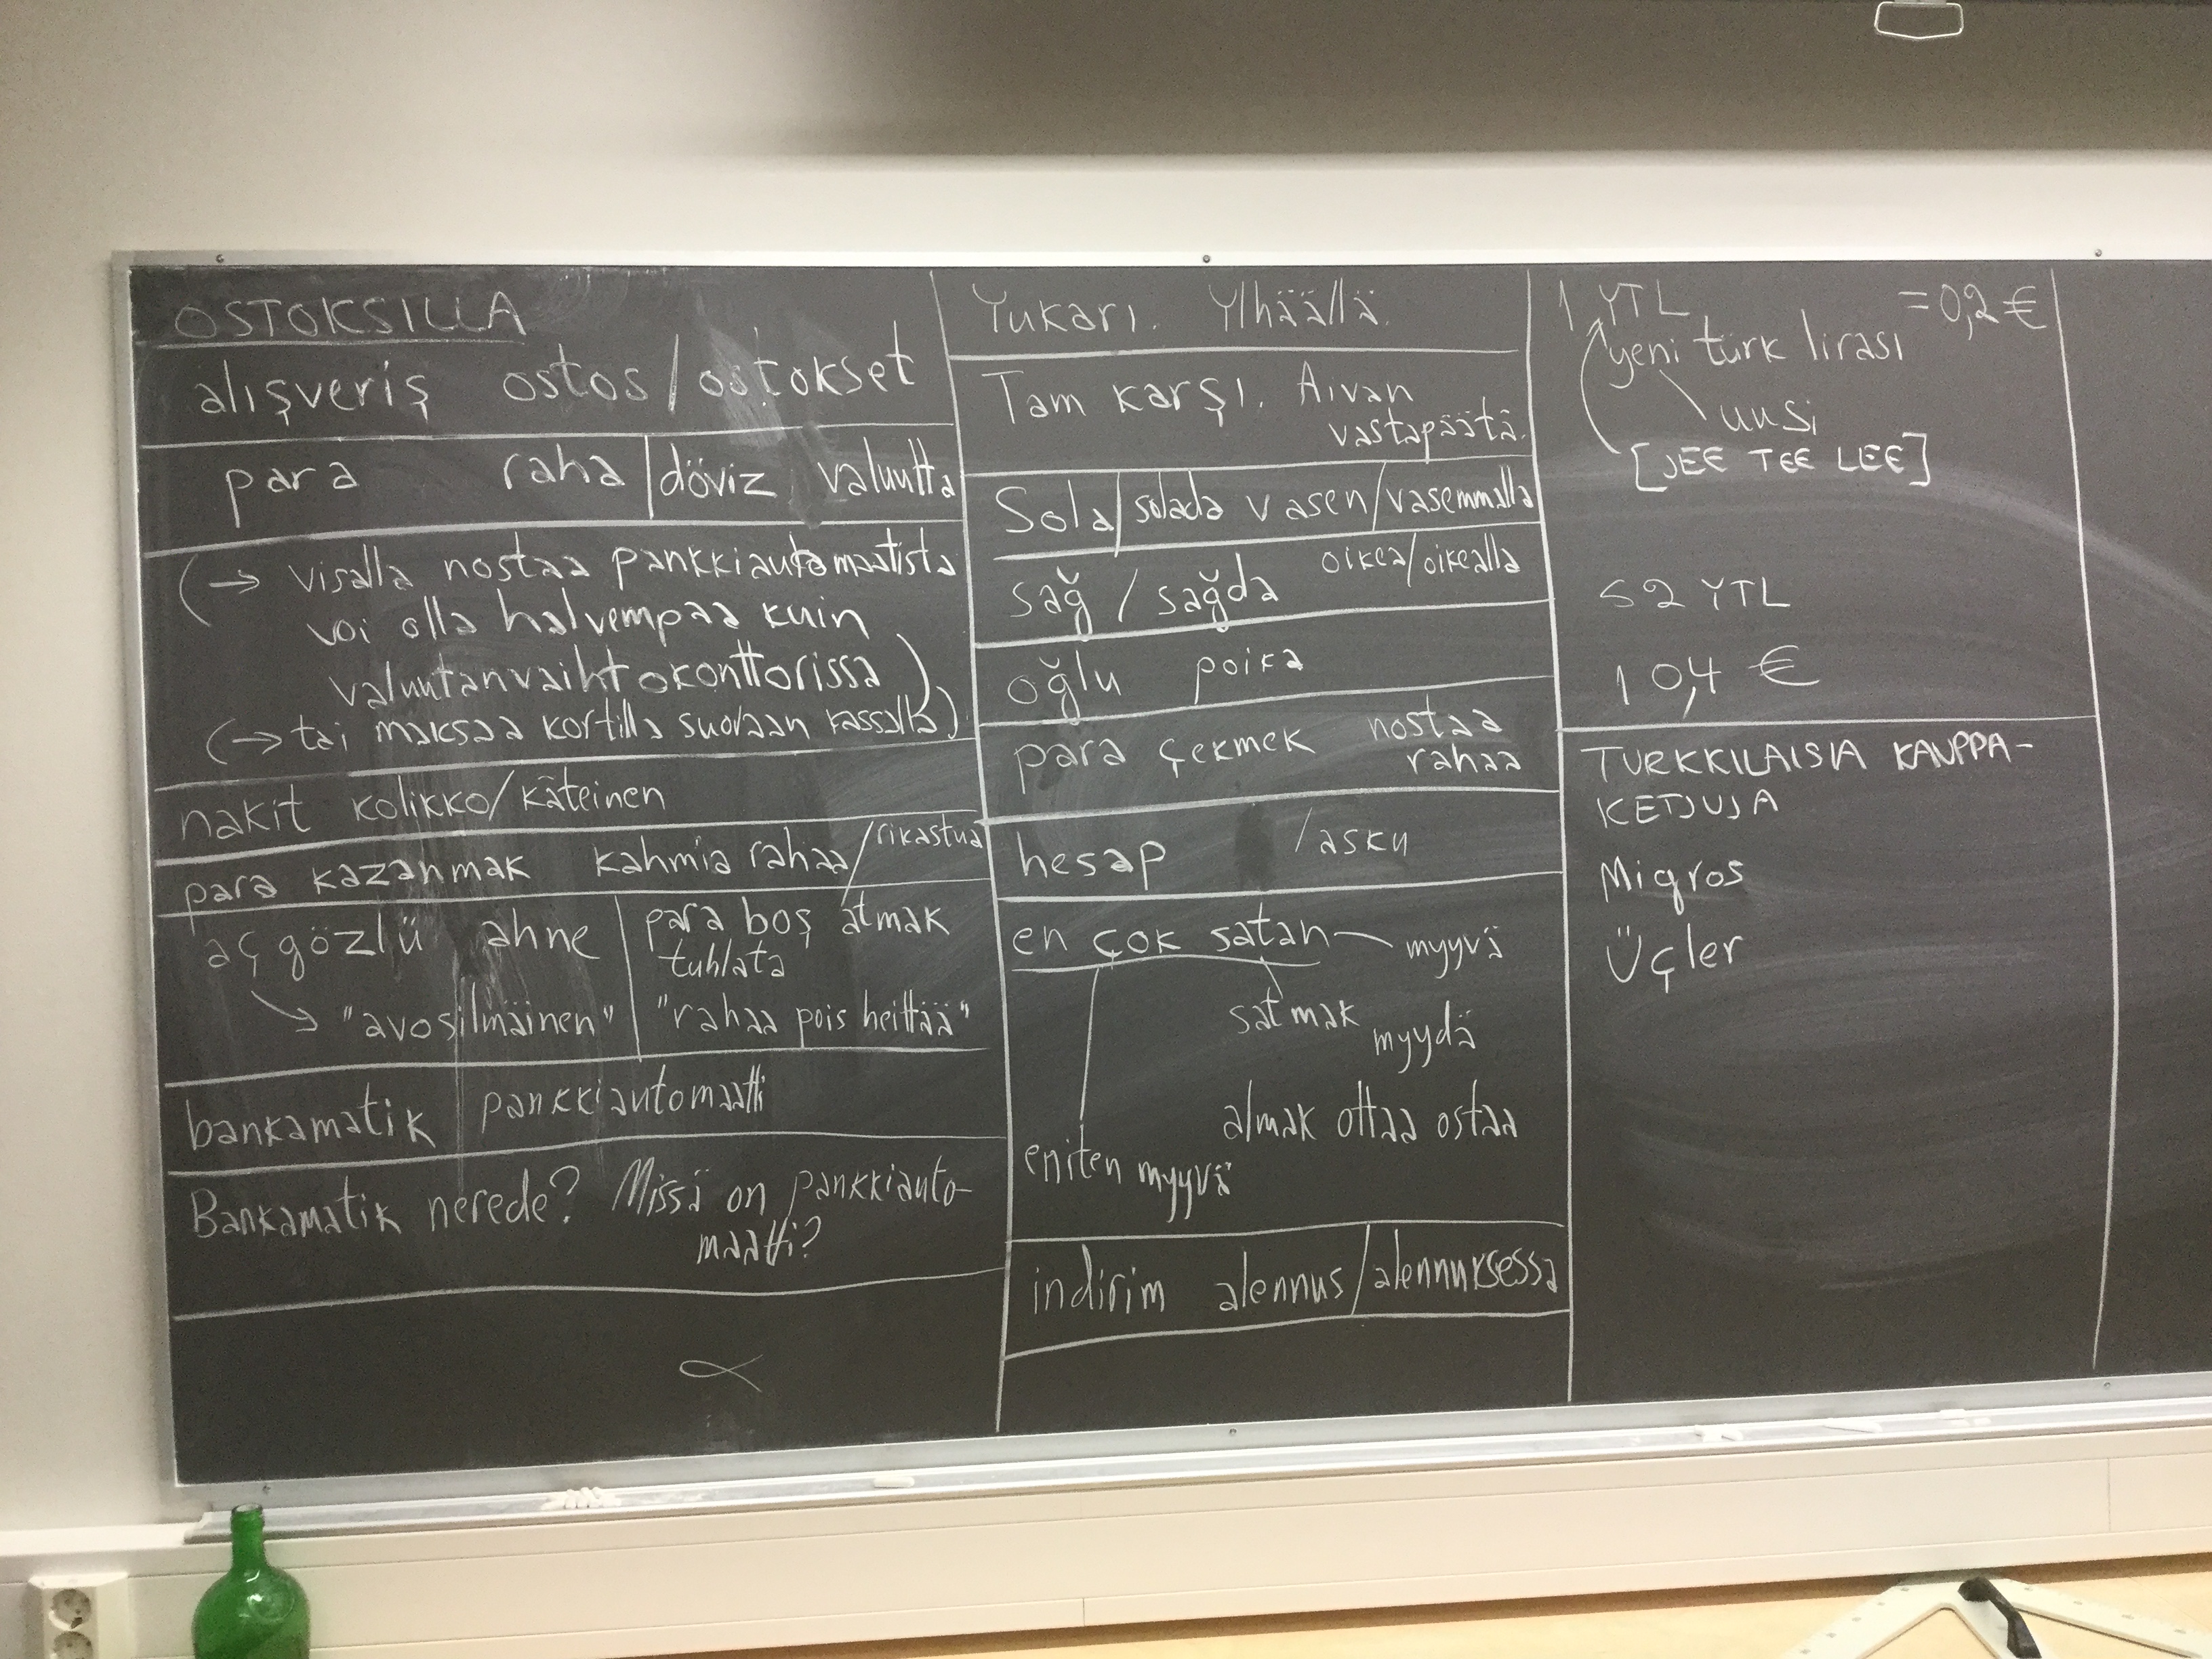 OSTOKSILLA
alışveriş ostos/ostokset
para raha/döviz valuutta
(→ visalla nostaa pankkiautomaatista
voi olla halvempaa kuin
valuutanvaihtokonttorissa)
(→ tai maksaa kortilla suoraan kassalla)
nakit kolikko/käteinen
para kazanmak kahmia rahaa/rikastua
açgözlü ahne
→ "avosilmäinen"
para boş atmak
tuhlata
"rahaa pois heittää"
bankamatik pankkiautomaatti
Bankamatik nerede? Missä on pankkiauto-
maatti?
Yukarı. Ylhäällä.
Tam karşı. Aivan
vastapäätä.
Sola/solada vasen/vasemmalla
sağ/sağda oikea/oikealla
oğlu poika
para çekmek nostaa
rahaa
hesap /asku
en çok satan myyvä
satmak
myydä
almak ottaa ostaa
eniten myyvä
indirim alennus/alennuksessa
1 YTL = 0,2 €
yeni türk lirası
uusi
[JEE TEE LEE]
52 YTL
10,4 €
TURKKILAISIA KAUPPA-
KETJUJA
Migros
Üçler